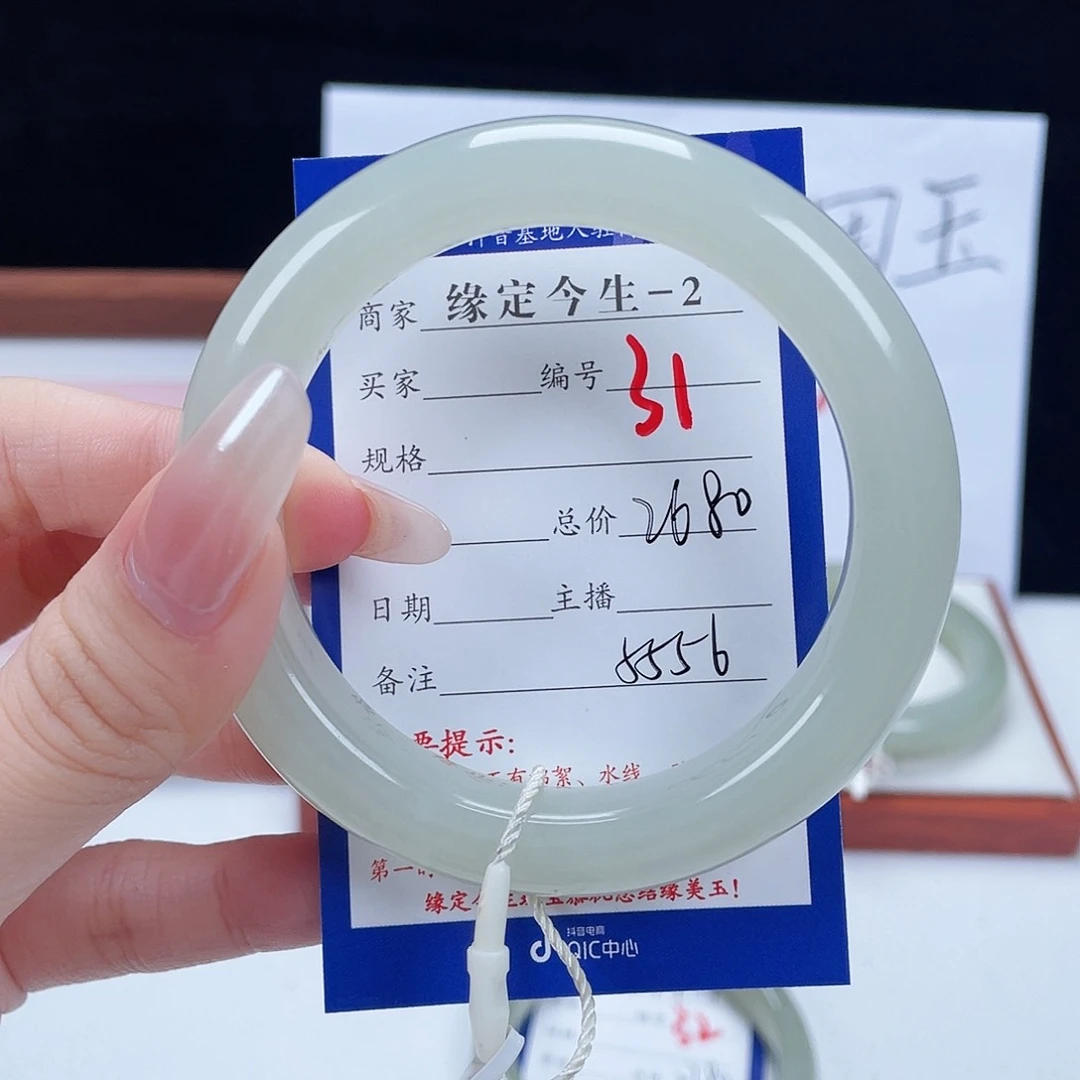 抖音基地入驻
商家 缘定今生-2
买家 编号 31
规格
总价 2680
日期 主播
备注 8556
提示:
有 絮、水线
第一
缘定今生 结缘美玉!
抖音电商
QIC中心
玉